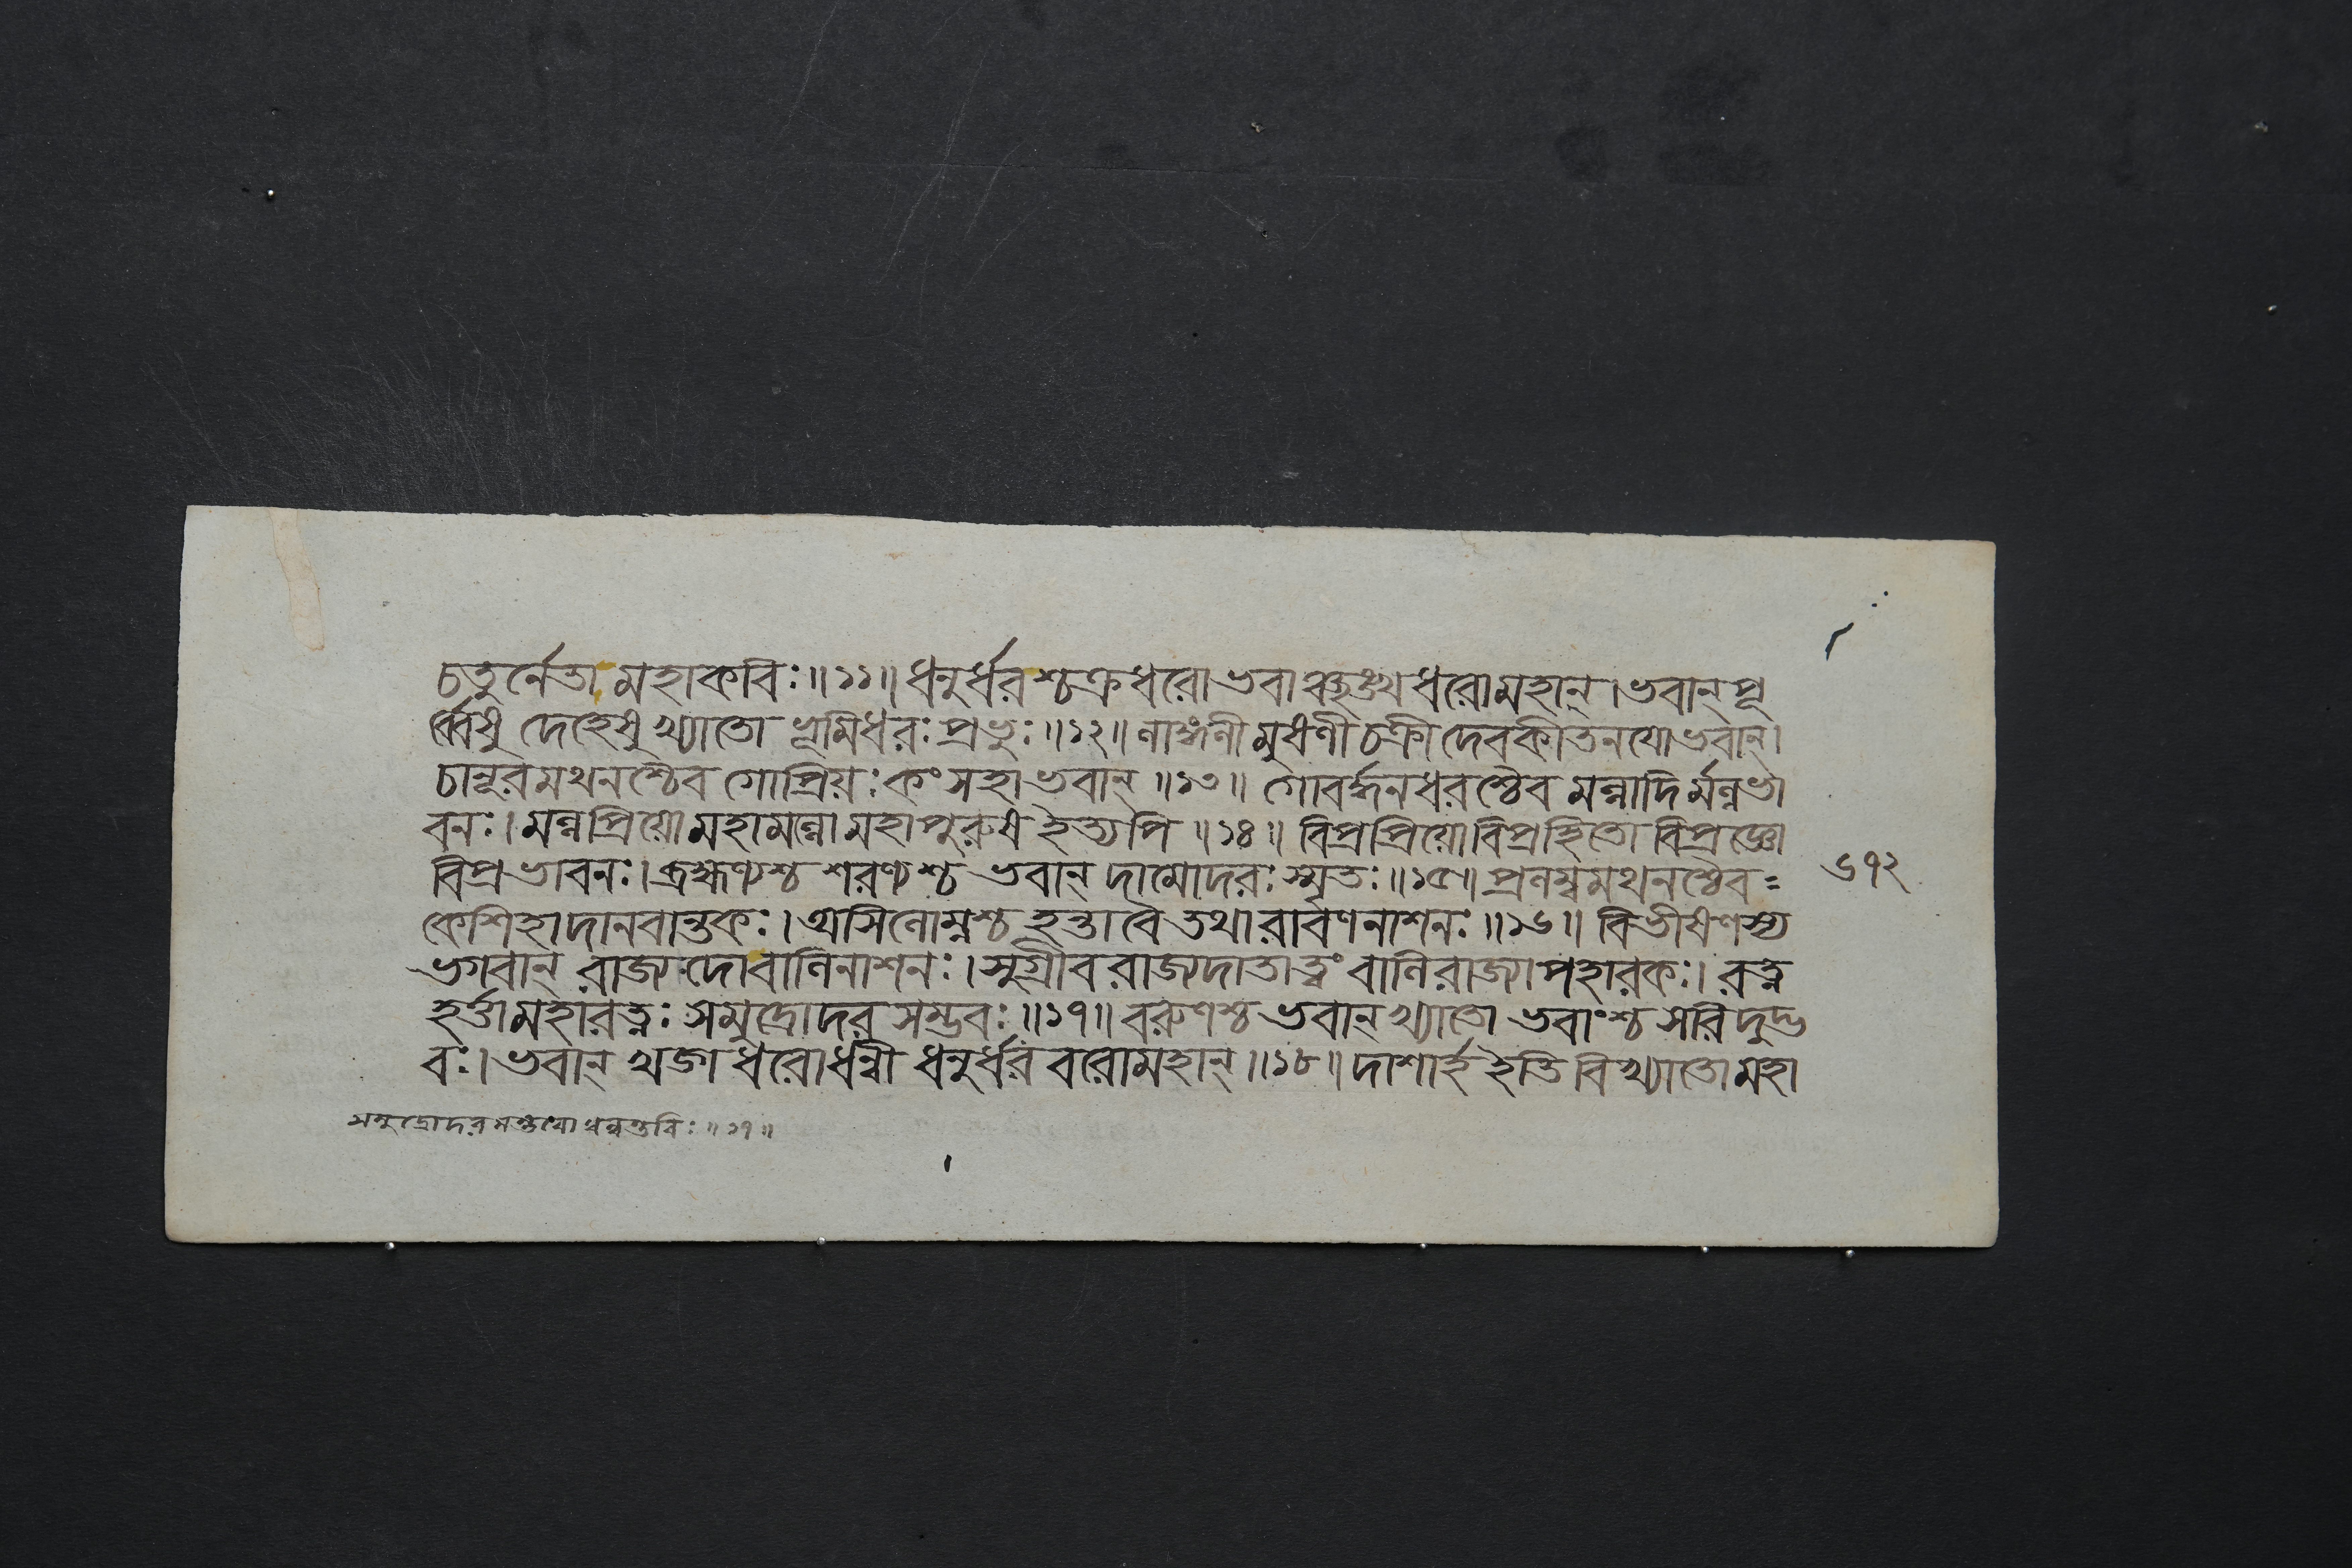 চতুর্নেতা মহাকবিঃ॥১১॥ধনুর্ধরশ্চক্রধরো ভবাঞ্ছঙ্খধরোমহান্।ভবান্পূ
র্ব্বেষু দেহেষু খ্যাতো ভূমিধরঃ প্রভুঃ॥১২॥লাঙ্গলী মুষলী চক্রী দেবকীতনযো ভবান্।
চানূরমথনশ্চৈব গোপ্রিয়ঃ কংসহা ভবান্॥১৩॥ গোবর্দ্ধনধরশ্চৈব মল্লাদির্মল্লভা
বনঃ।মল্লপ্রিয়ো মহামল্লো মহাপুরুষ ইত্যপি॥১৪॥ বিপ্রপ্রিয়ো বিপ্রহিতো বিপ্রজ্ঞো
বিপ্রভাবনঃ।ব্রহ্মণ্যশ্চ শরণ্যশ্চ ভবান্ দামোদরঃ স্মৃতঃ॥১৫॥প্রলম্বমথনশ্চৈব=
কেশিহা দানবান্তকঃ।অসিলোম্নশ্চ হন্তা বৈ তথা রাবণনাশনঃ॥১৬॥ বিভীষণস্য
ভগবান্ রাজ্যদো বালিনাশনঃ।সুগ্রীবরাজ্যদাতা ত্বং বালিরাজ্যাপহারকঃ। রত্ন
হর্ত্তা মহারত্নঃ সমুদ্রোদর সম্ভবঃ॥১৭॥বরুণশ্চ ভবান্ খ্যাতো ভবাংশ্চ সরিদুদ্ভ
বঃ।ভবান্ খড়্গধরো ধন্বী ধনুর্ধর বরোমহান্॥১৮॥দাশার্হ ইতি বিখ্যাতো মহা
সমুদ্রোদর ধন্বন্তরিঃ॥১৭॥
৬৭২